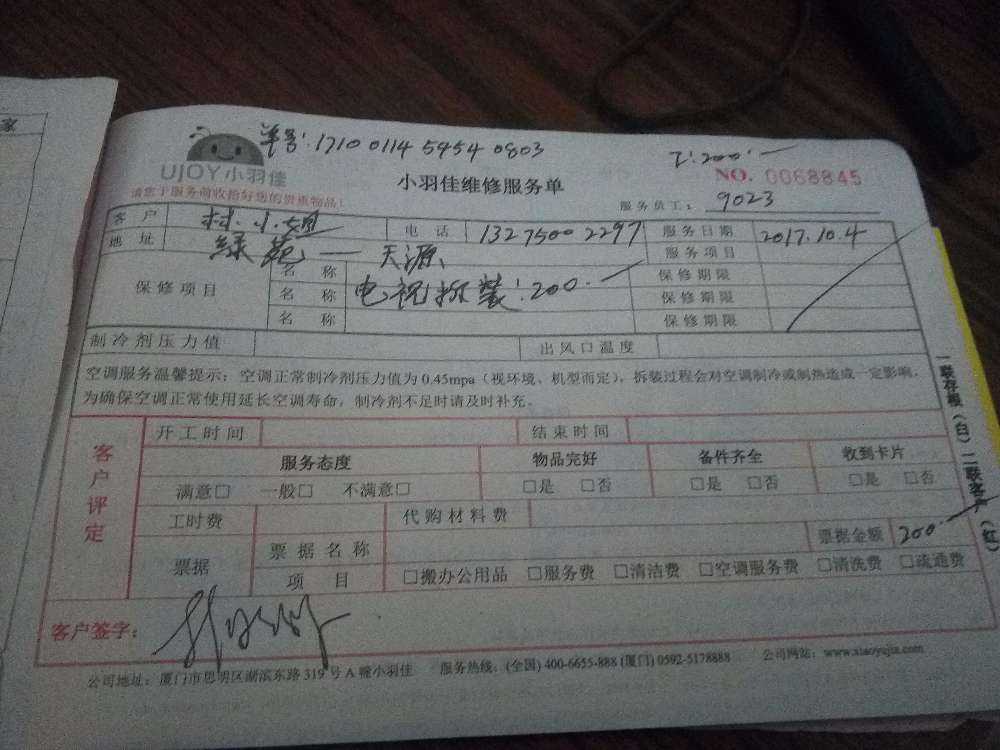 家
单号:1710 0114 5454 0803
工:200.
UJOY小羽佳
小羽佳维修服务单
NO. 0068845
请您于服务前收拾好您的贵重物品!
服务员工: 9023
客户 林小姐 电话 13275002297 服务日期 2017.10.4
地址 绿苑——天源 服务项目
保修项目 名称 保修期限
名称 电视拆装:200. 保修期限
名称 保修期限
制冷剂压力值 出风口温度
空调服务温馨提示:空调正常制冷剂压力值为0.45mpa(视环境、机型而定),拆装过程会对空调制冷或制热造成一定影响,
为确保空调正常使用延长空调寿命,制冷剂不足时请及时补充。
客户评定
开工时间 结束时间
服务态度 物品完好 备件齐全 收到卡片
满意□ 一般□ 不满意□ □是 □否 □是 □否 □是 □否
工时费 代购材料费
票据 票据名称 票据金额 200.
项目 □搬办公用品 □服务费 □清洁费 □空调服务费 □清洗费 □疏通费
客户签字:
公司地址:厦门市思明区湖滨东路319号A幢小羽佳 服务热线:(全国) 400-6655-888 (厦门) 0592-5178888 公司网站:www.xiaoyujia.com
一联存根(白)二联客户(红)